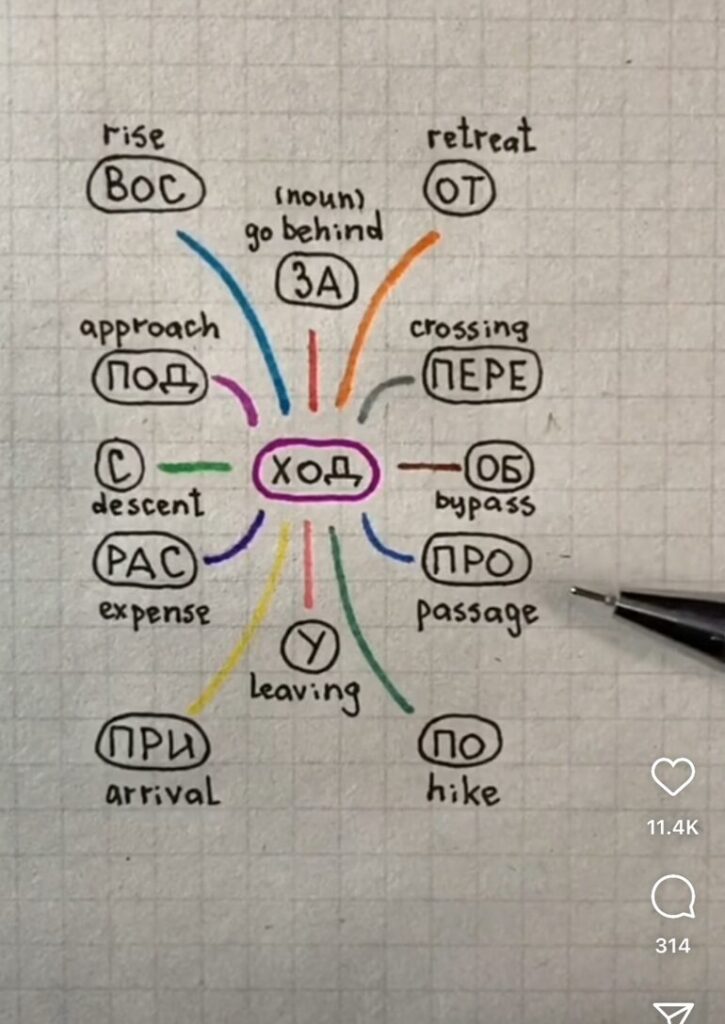 rise
ВОС
retreat
ОТ
(noun)
go behind
ЗА
approach
ПОД
crossing
ПЕРЕ
С
descent
ХОД
ОБ
bypass
РАС
expense
ПРО
passage
У
leaving
ПРИ
arrival
ПО
hike
11.4K
314